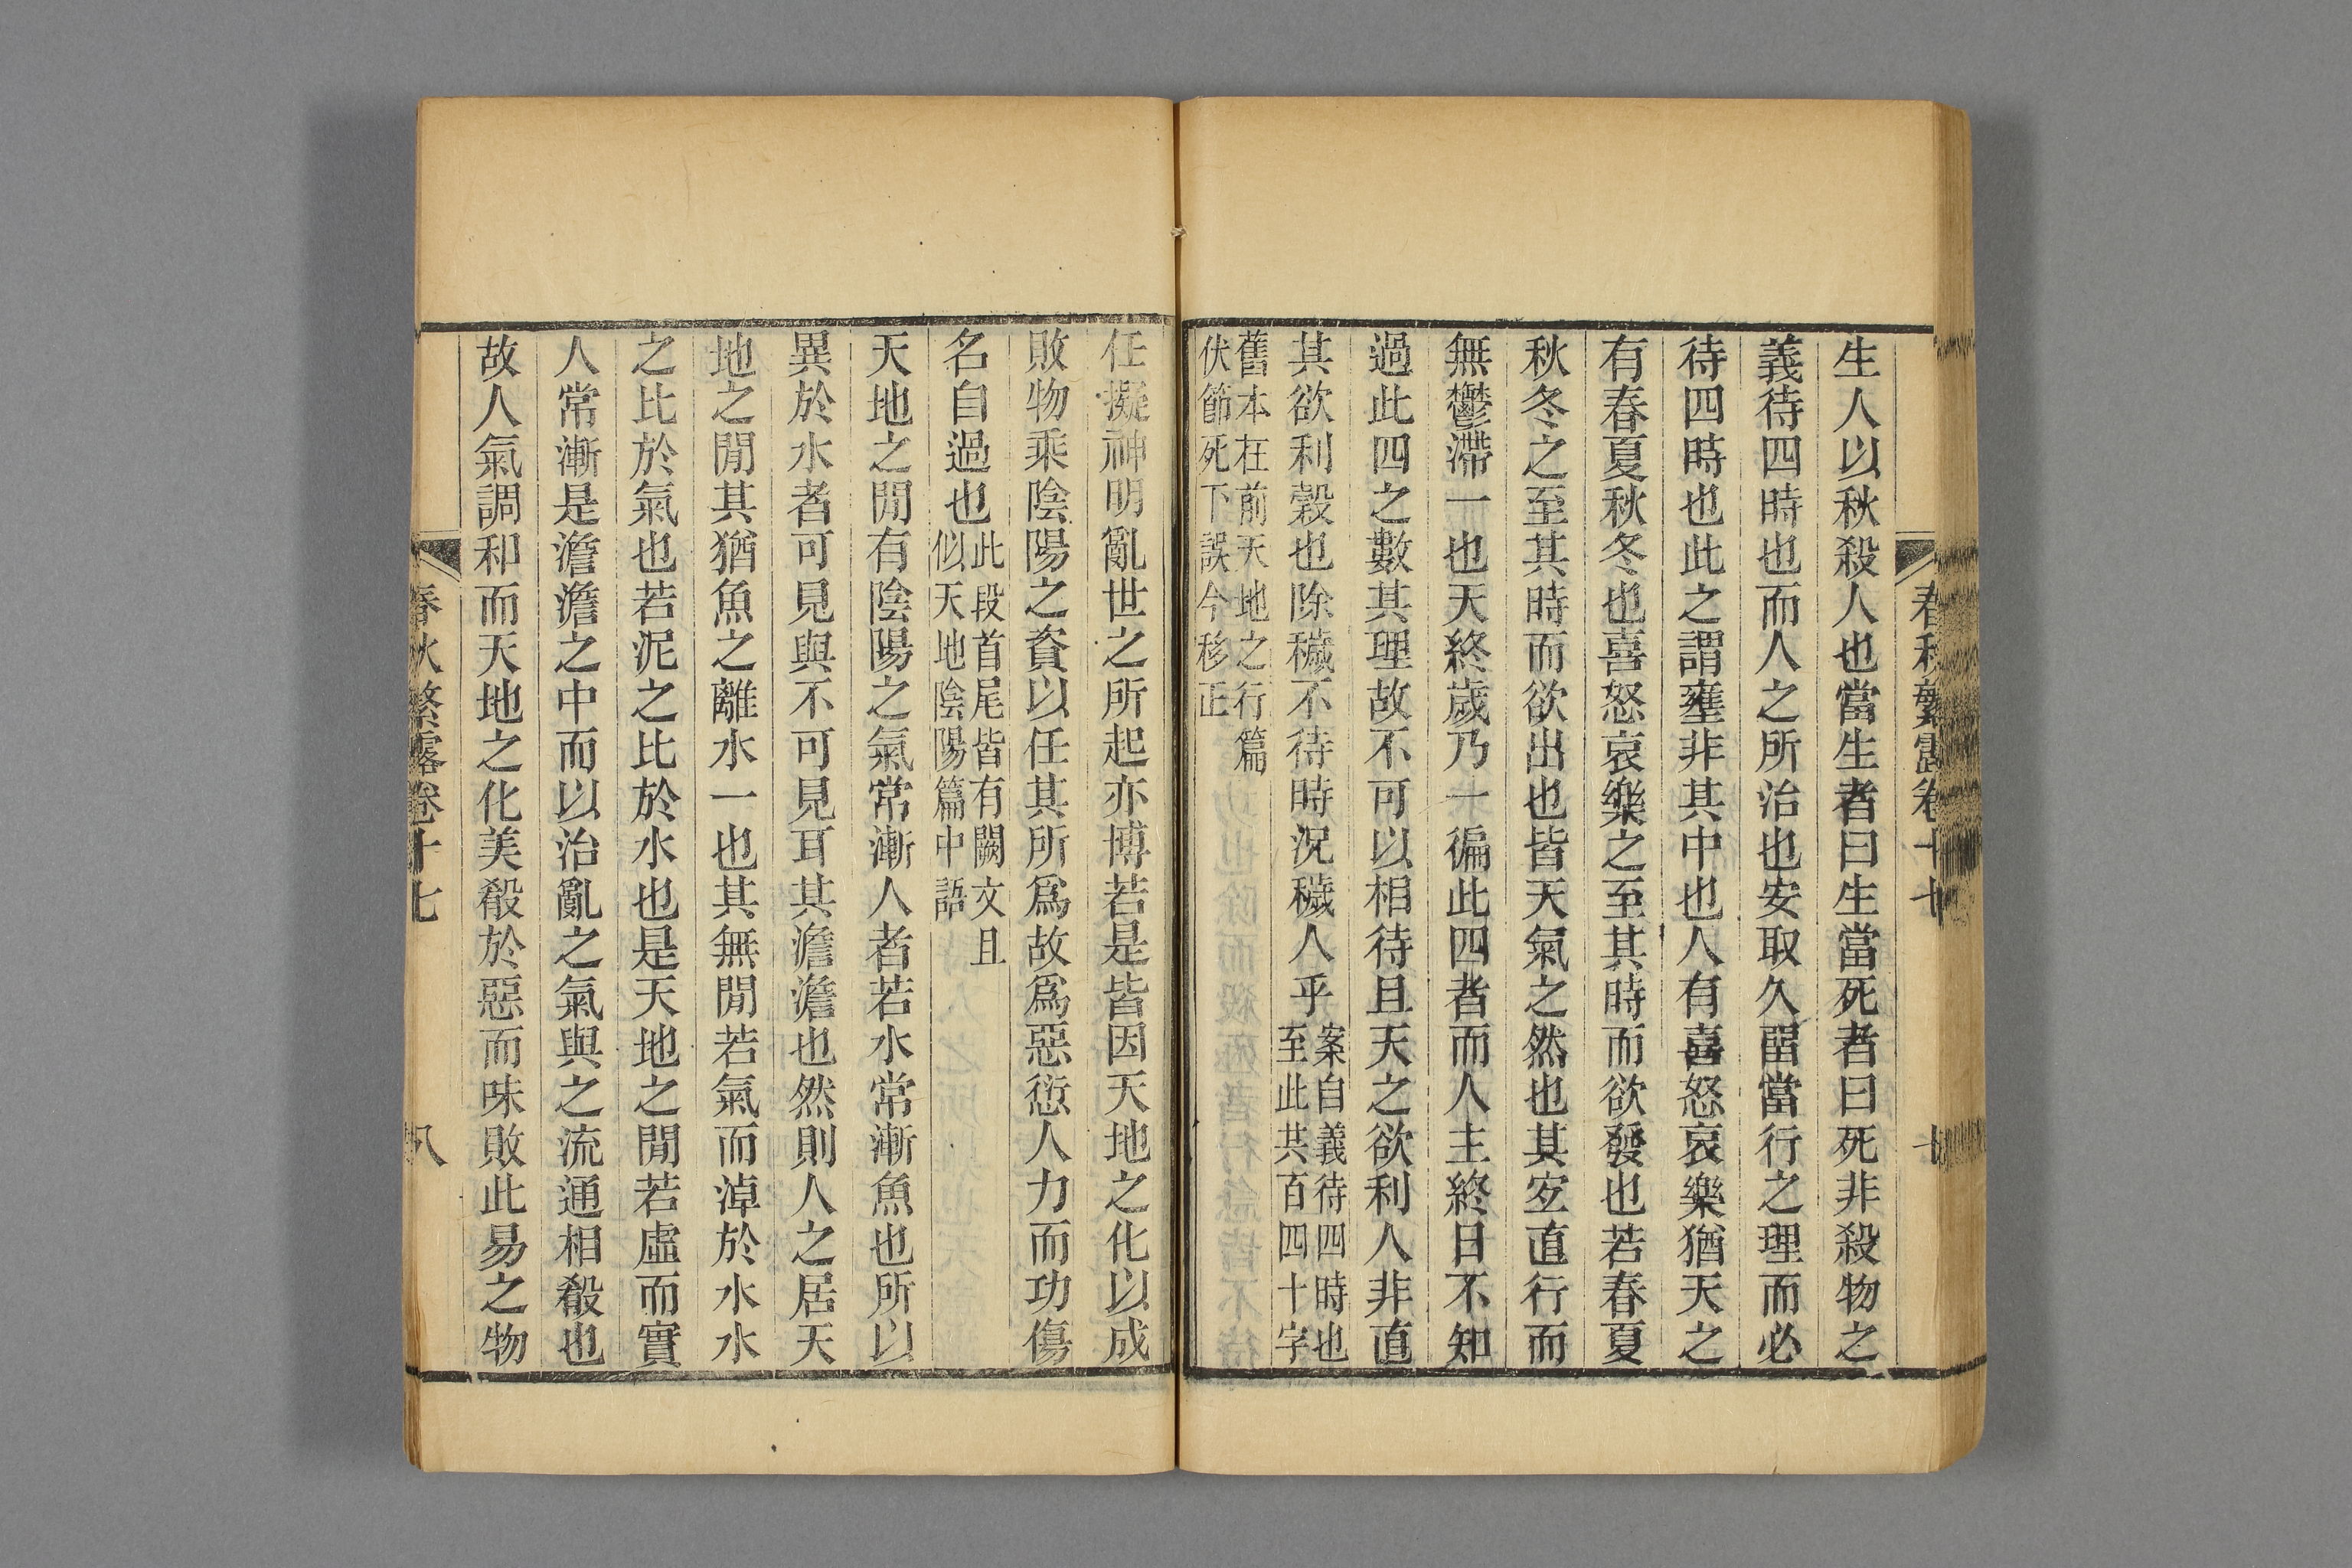 春秋繁露卷十七
十
生人以秋殺人也當生者曰生當死者曰死非殺物之
義待四時也而人之所治也安取久畱當行之理而必
待四時也此之謂壅非其中也人有喜怒哀樂猶天之
有春夏秋冬也喜怒哀樂之至其時而欲發也若春夏
秋冬之至其時而欲出也皆天氣之然也其宐直行而
無鬱滯一也天終歲乃一徧此四者而人主終日不知
過此四之數其理故不可以相待且天之欲利人非直
其欲利穀也除穢不待時況穢人乎
案自義待四時也
至此共百四十字
舊本在前天地之行篇
伏節死下誤今移正
任擬神明亂世之所起亦博若是皆因天地之化以成
敗物乘陰陽之資以任其所爲故爲惡愆人力而功傷
名自過也
此段首尾皆有闕文且
似天地陰陽篇中語
天地之閒有陰陽之氣常漸人者若水常漸魚也所以
異於水者可見與不可見耳其澹澹也然則人之居天
地之閒其猶魚之離水一也其無閒若氣而淖於水水
之比於氣也若泥之比於水也是天地之閒若虛而實
人常漸是澹澹之中而以治亂之氣與之流通相殽也
故人氣調和而天地之化美殽於惡而味敗此易之物
春秋繁露卷十七
八